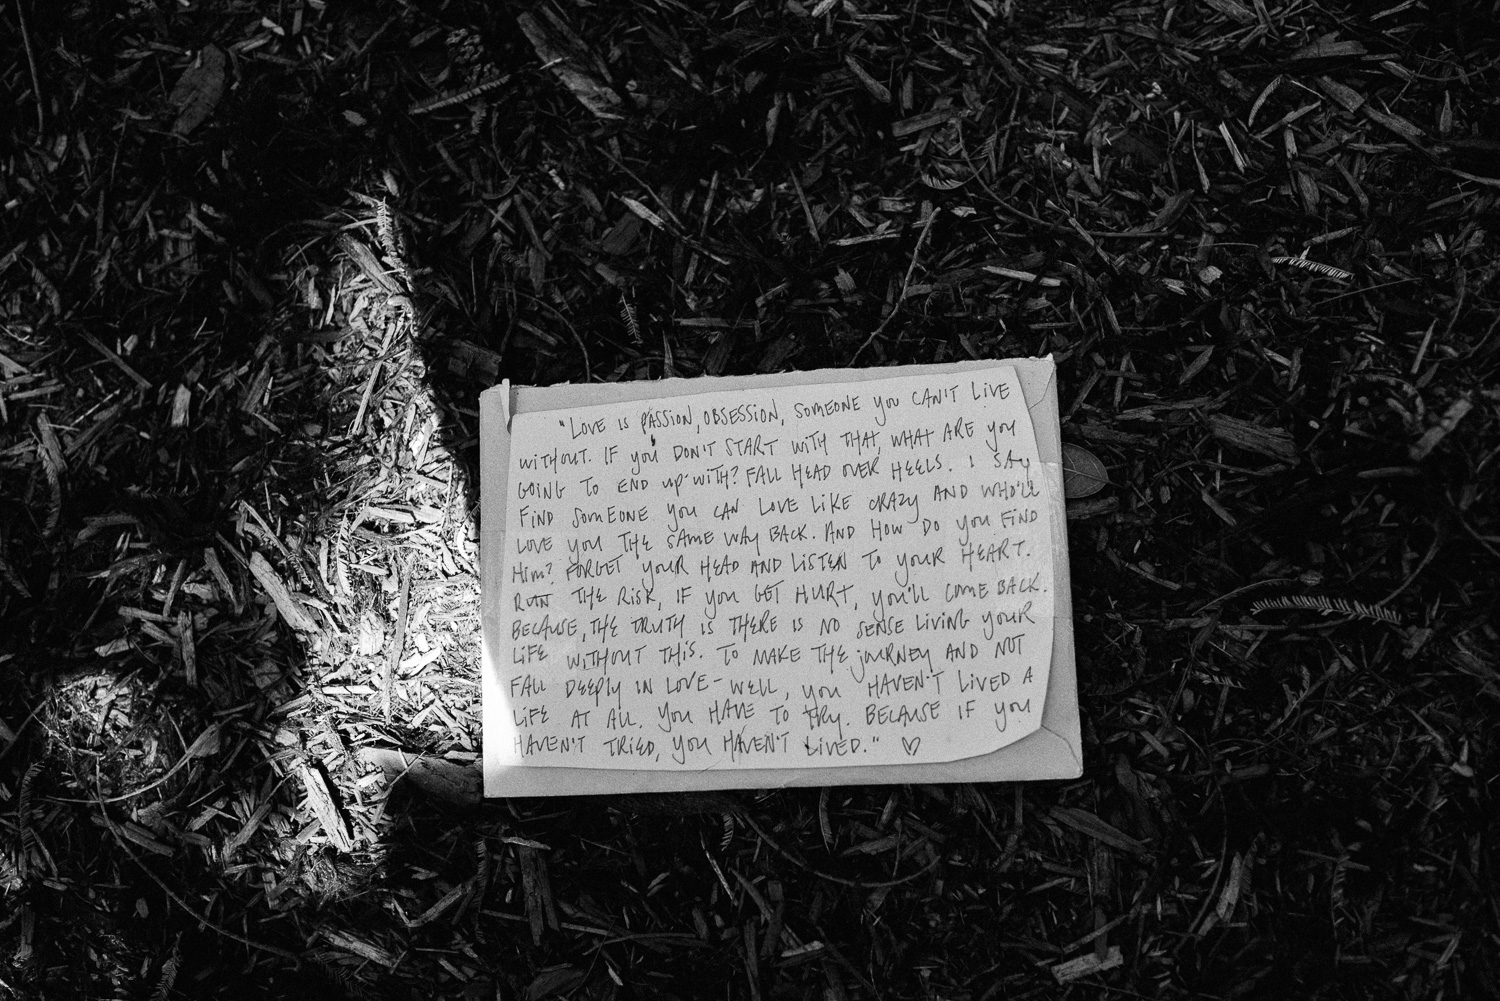 "LOVE IS PASSION, OBSESSION, SOMEONE YOU CAN'T LIVE
WITHOUT. IF YOU DON'T START WITH THAT, WHAT ARE YOU
GOING TO END UP WITH? FALL HEAD OVER HEELS. I SAY
FIND SOMEONE YOU CAN LOVE LIKE CRAZY AND WHO'LL
LOVE YOU THE SAME WAY BACK. AND HOW DO YOU FIND
HIM? FORGET YOUR HEAD AND LISTEN TO YOUR HEART.
RUN THE RISK, IF YOU GET HURT, YOU'LL COME BACK.
BECAUSE, THE TRUTH IS THERE IS NO SENSE LIVING YOUR
LIFE WITHOUT THIS. TO MAKE THE JOURNEY AND NOT
FALL DEEPLY IN LOVE - WELL, YOU HAVEN'T LIVED A
LIFE AT ALL. YOU HAVE TO TRY. BECAUSE IF YOU
HAVEN'T TRIED, YOU HAVEN'T LIVED." ♡